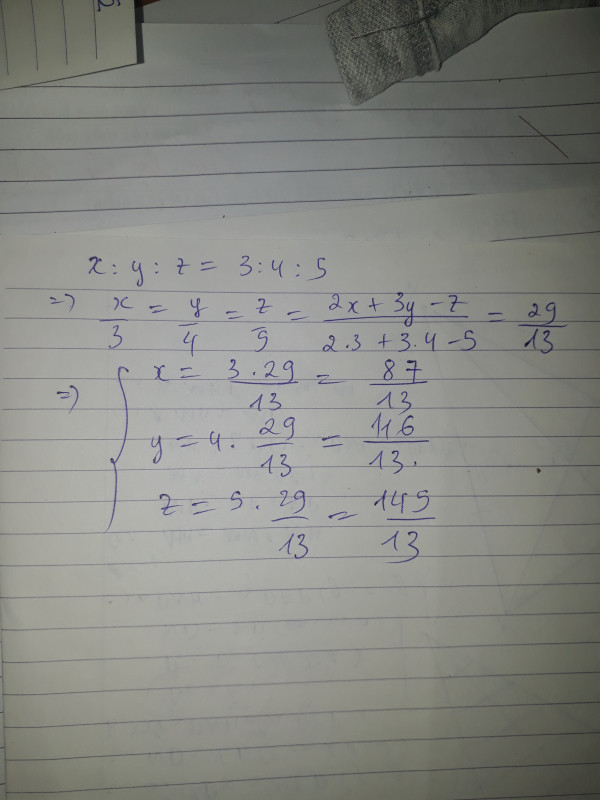 x : y : z = 3 : 4 : 5
=> x/3 = y/4 = z/5 = (2x + 3y - z)/(2.3 + 3.4 - 5) = 29/13
=> { x = (3.29)/13 = 87/13
y = 4. 29/13 = 116/13.
z = 5. 29/13 = 145/13